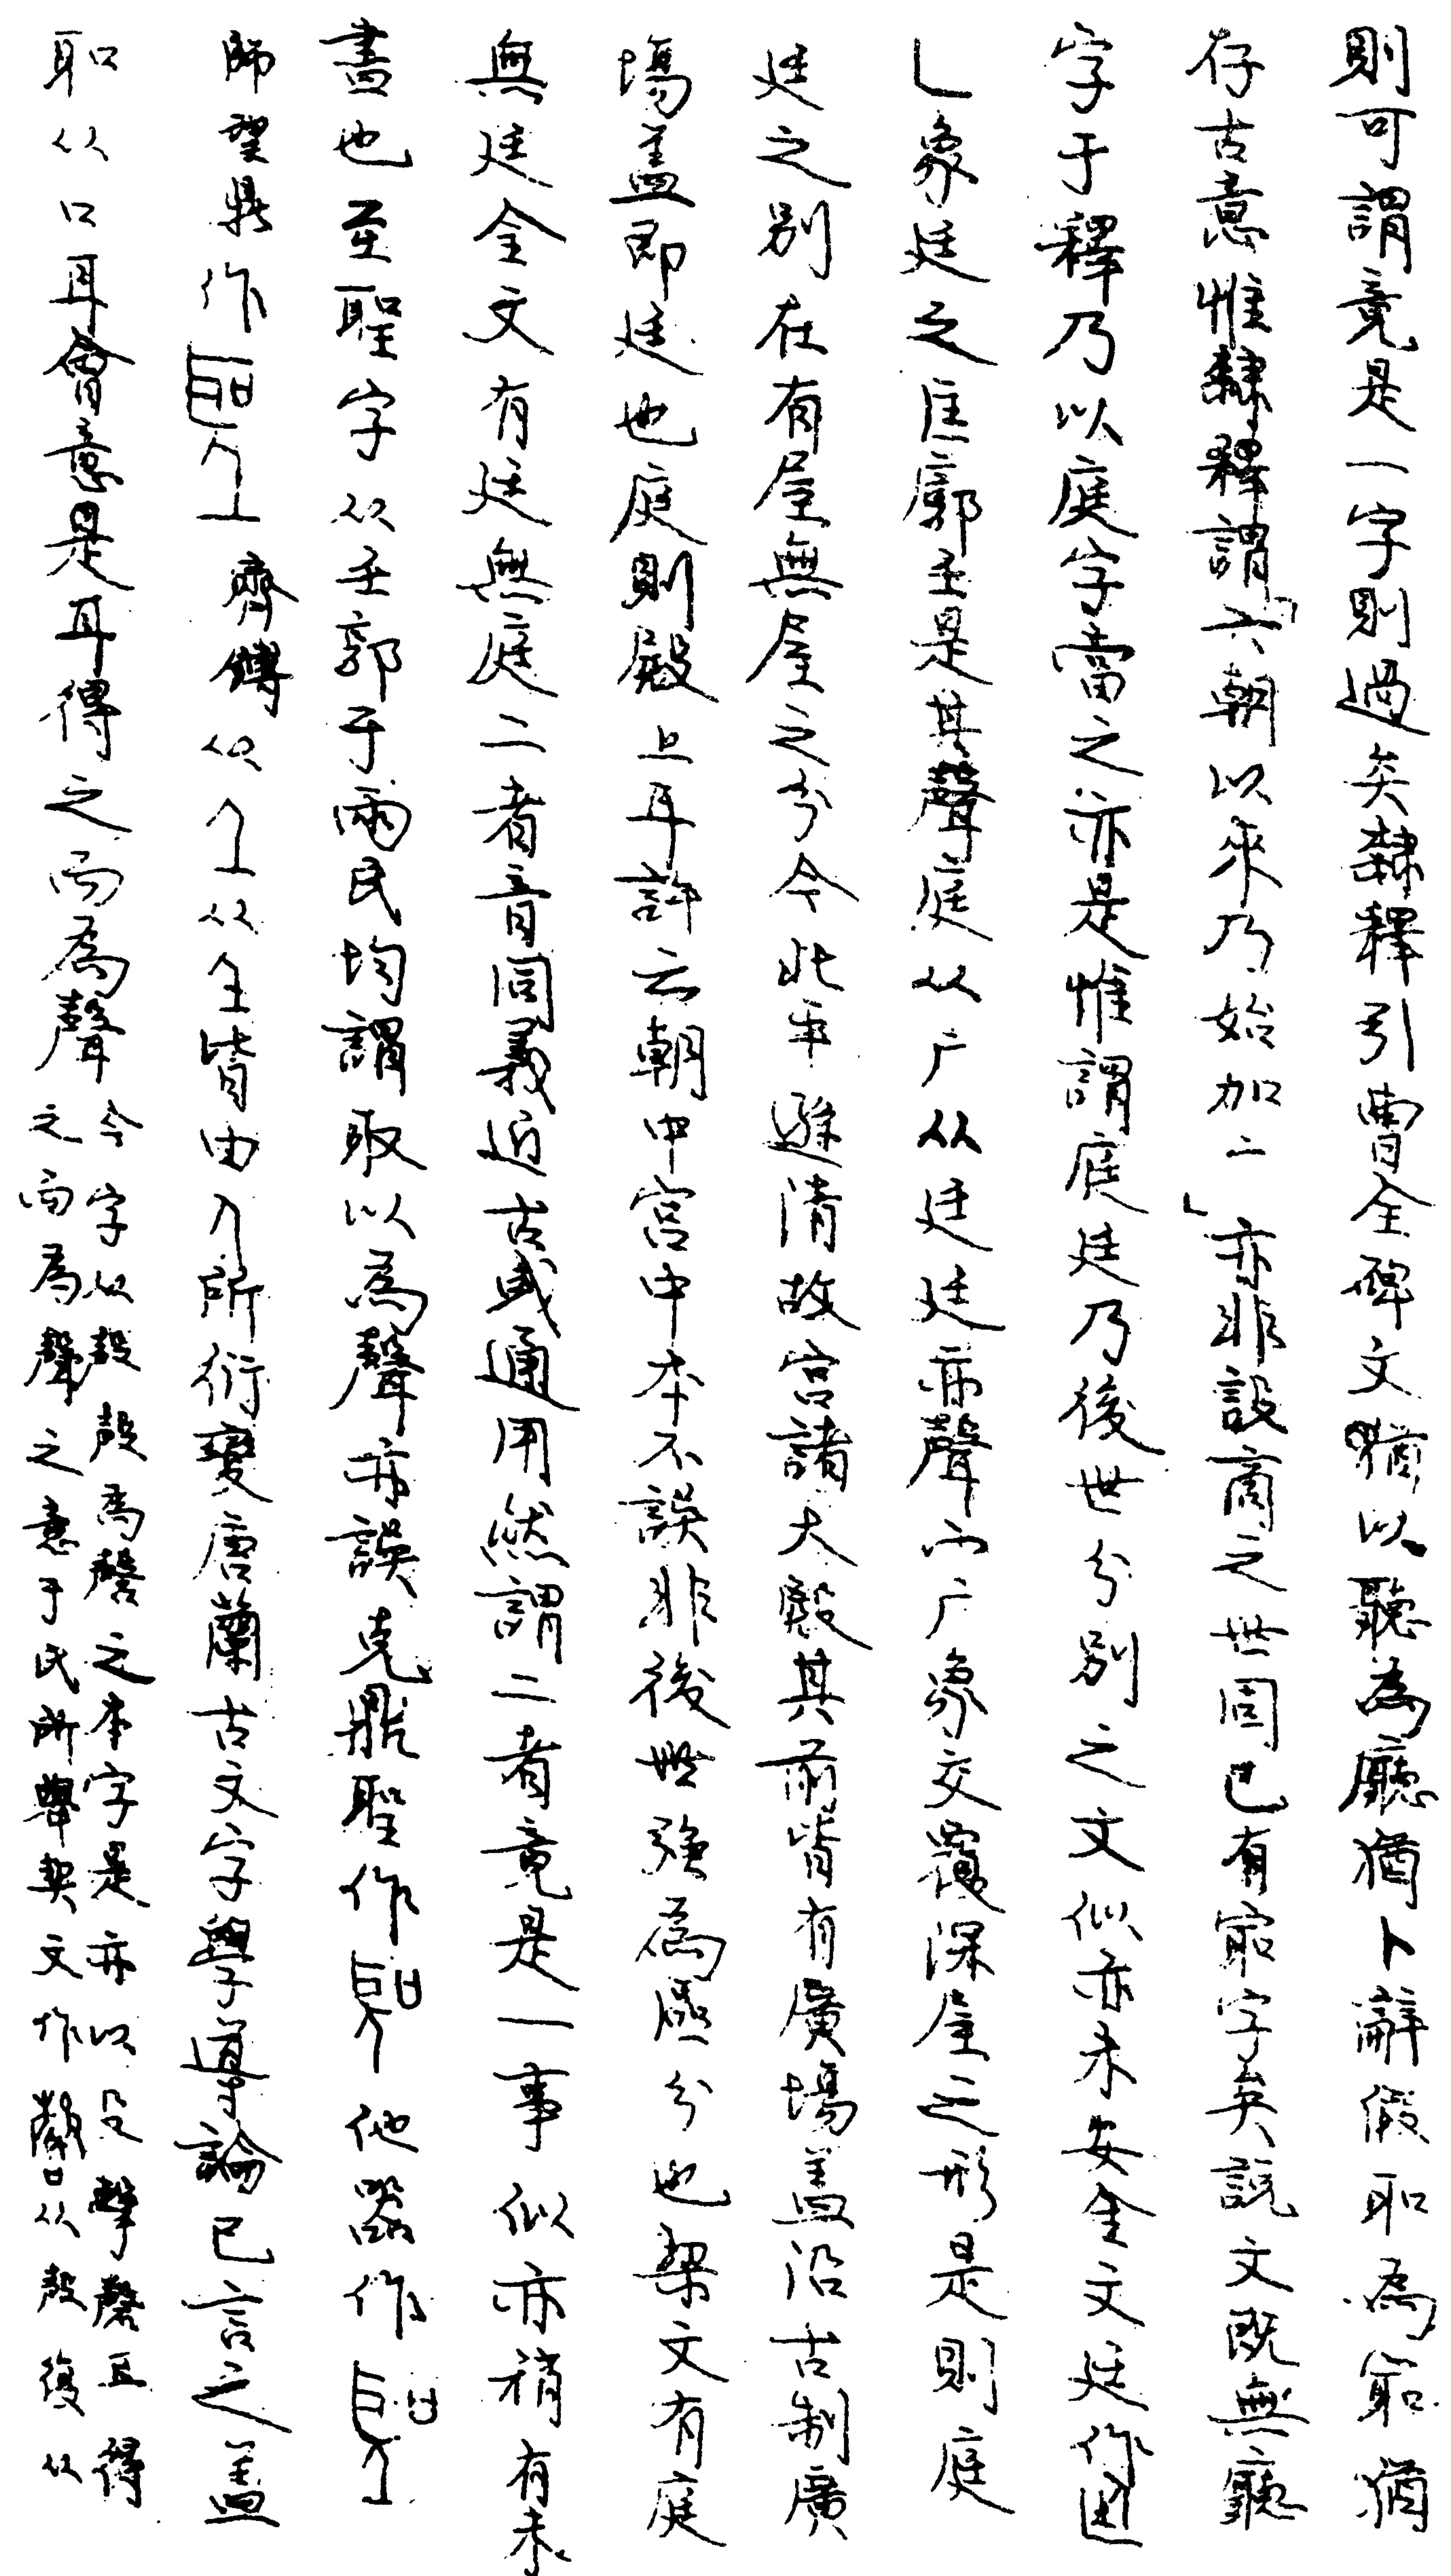 則可謂竟是一字則過矣隸釋引曹全碑文猶以聽為廳猶卜辭假耴為𡧛猶
存古意惟隸釋謂「六朝以來乃始加广」亦非設商之世固已有𡧛字矣說文既無廳
字于釋乃以庭字當之亦是惟謂庭廷乃後世分別之文似亦未安金文廷作
乚象廷之匡廓𡈼是其聲庭从广从廷廷亦聲而广象交覆深屋之形是則庭
廷之別在有屋無屋之分今此平遜清故宮諸大殿其前皆有廣場盖沿古制廣
場盖即廷也庭則殿上耳許云朝中宮中本不誤非後世強為區分也栔文有庭
無廷金文有廷無庭二者音同義近古或通用然謂二者竟是一事似亦稍有未
盡也至聖字从𡈼郭于兩氏均謂𡈼以為聲亦誤克鼎聖作他器作
師望鼎作齊鎛从人从𡈼皆由人所衍變唐蘭古文字學導論已言之盖
耴从口耳會意是耳得之而為聲
今字从殸殸為磬之本字是亦以殳擊磬耳得
之而為聲之意于氏所舉契文作从殸復从